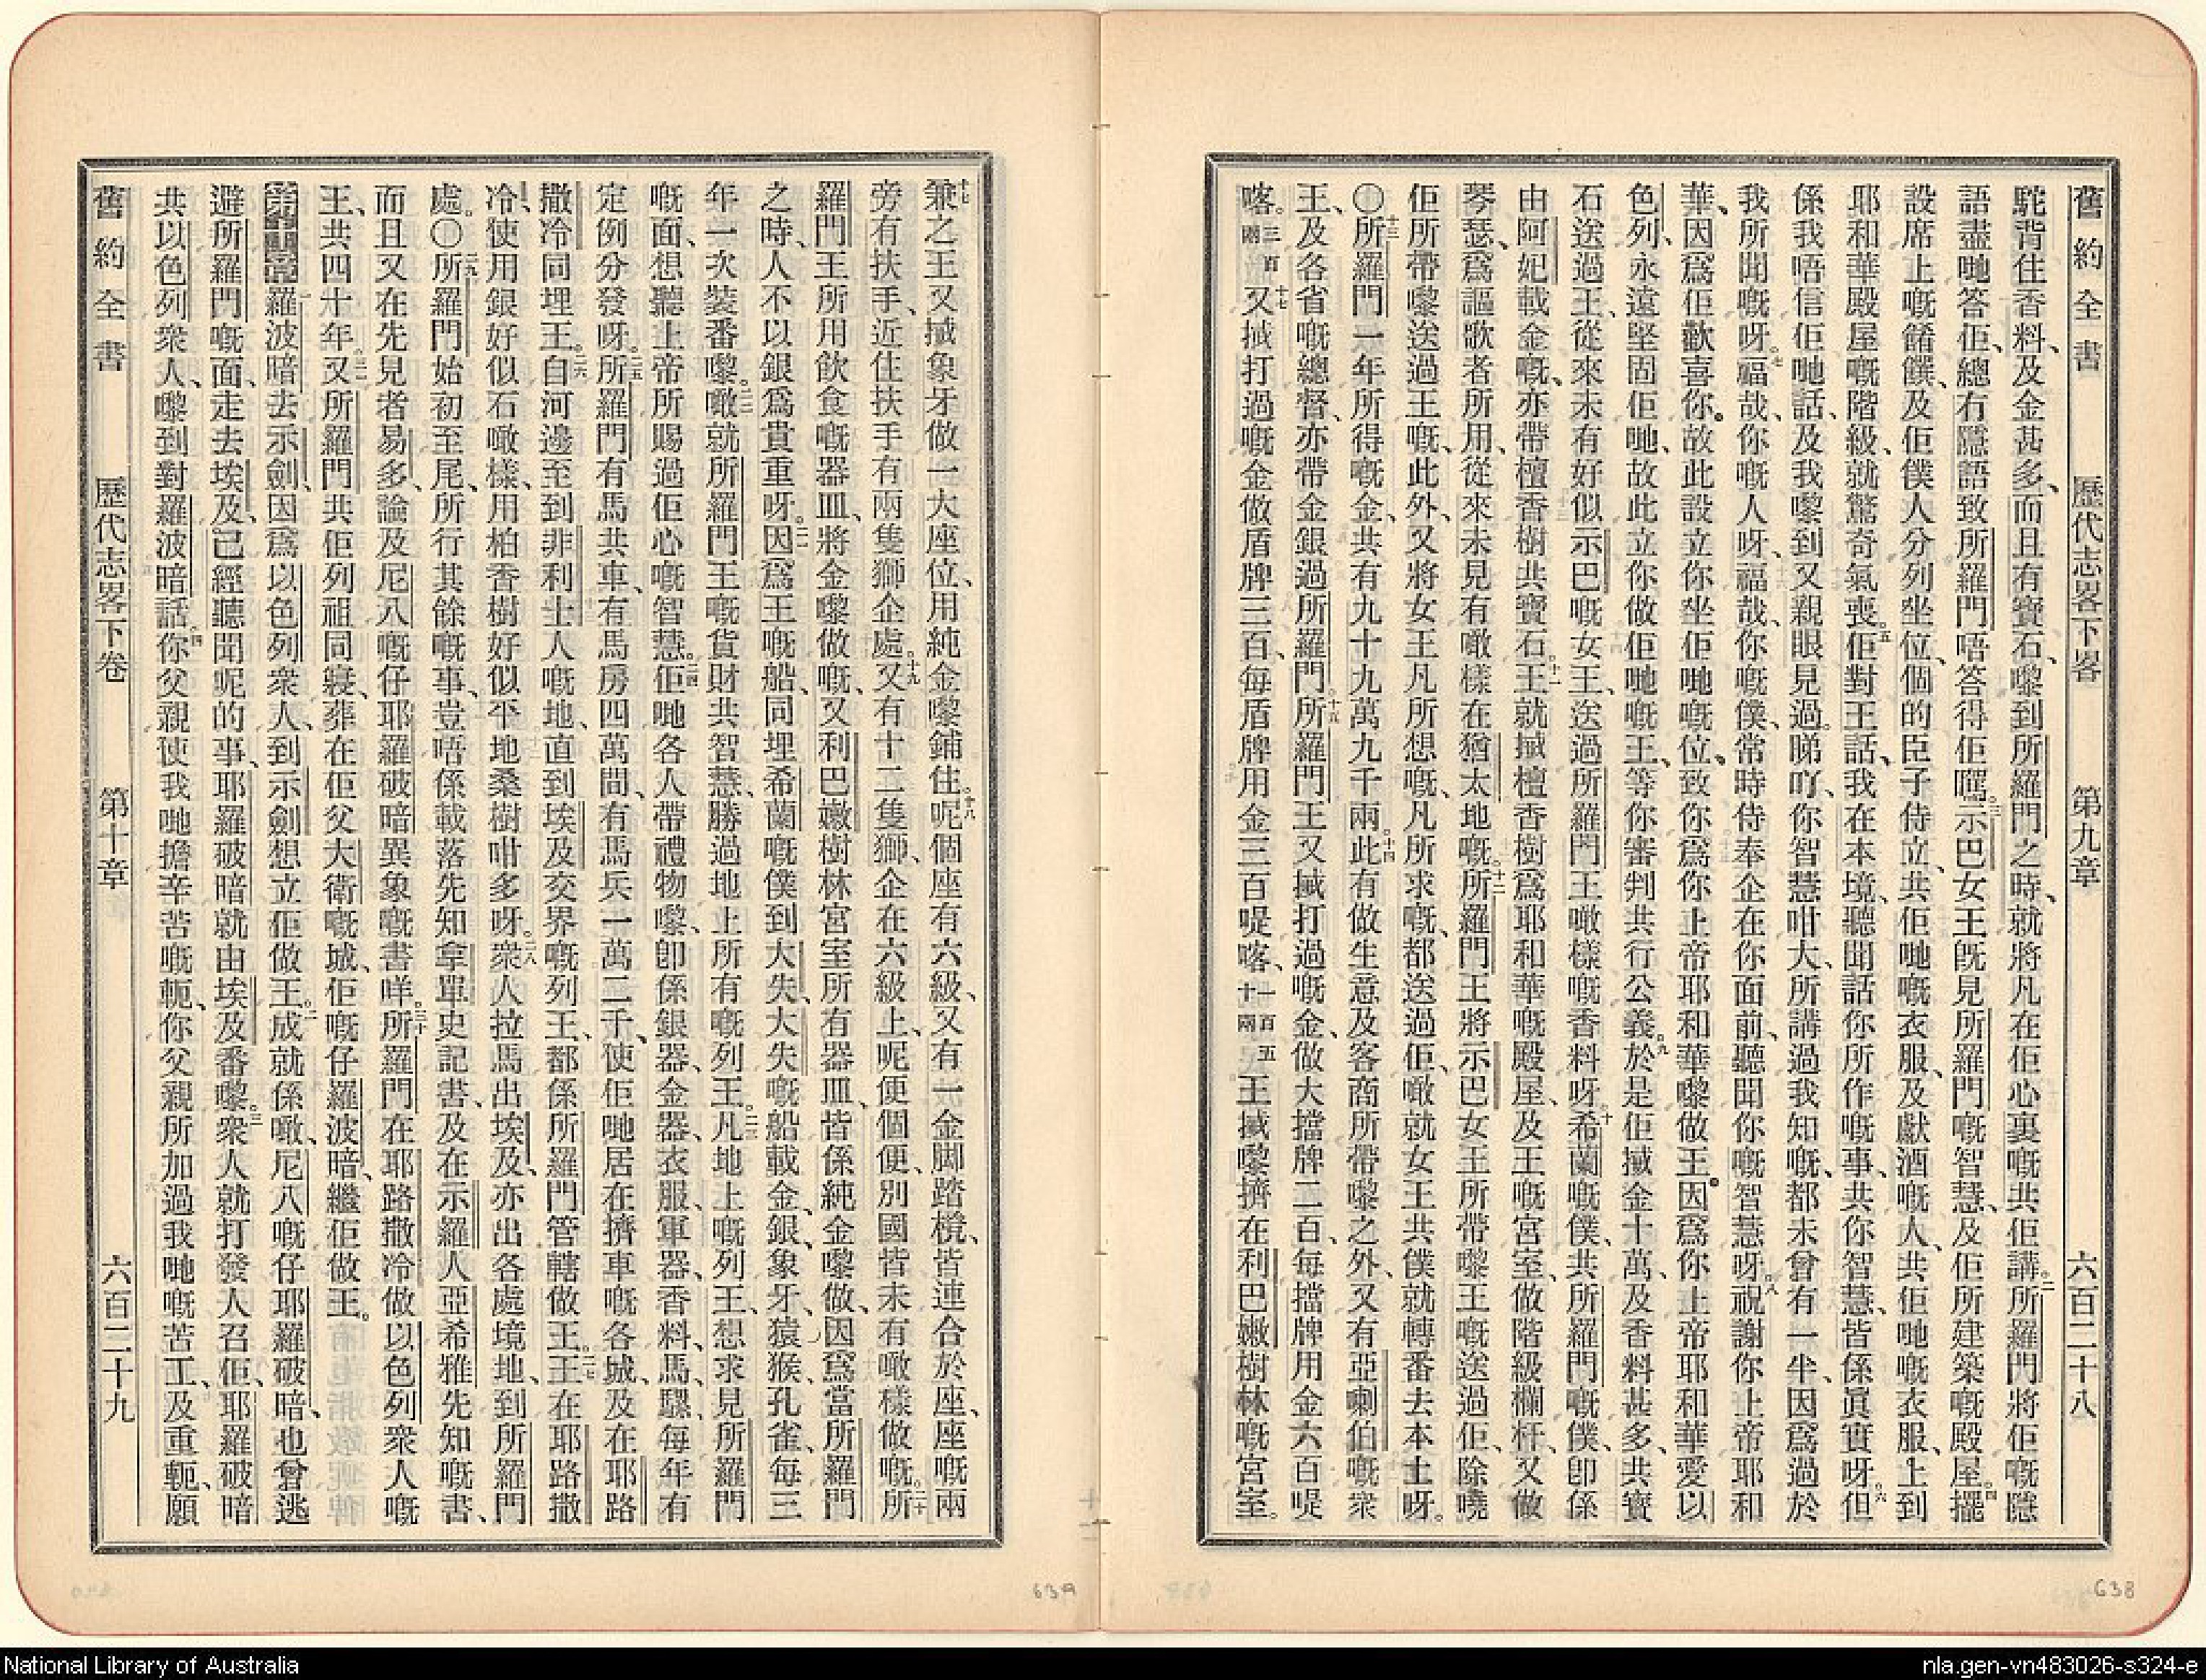 舊約全書 歷代志畧下畧 第九章 六百二十八
駝背住香料、及金甚多、而且有寶石、嚟到所羅門之時、就將凡在佢心裏嘅共佢講。二所羅門將佢嘅隱
語盡哋答佢、總冇隱語致所羅門唔答得佢嘅。三示巴女王旣見所羅門嘅智慧、及佢所建築嘅殿屋。四擺
設席上嘅餚饌、及佢僕人分列坐位、個的臣子侍立、共佢哋嘅衣服、及獻酒嘅人、共佢哋嘅衣服、上到
耶和華殿屋嘅階級、就驚奇氣喪。五佢對王話、我在本境、聽聞話你所作嘅事、共你智慧、皆係眞實呀。六但
係我唔信佢哋話、及我嚟到又親眼見過。睇吖、你智慧咁大、所講過我知嘅、都未曾有一半、因爲過於
我所聞嘅呀。七福哉、你嘅人呀、福哉、你嘅僕、常時侍奉企在你面前、聽聞你嘅智慧呀。八祝謝你上帝耶和
華、因爲佢歡喜你。故此設立你坐佢哋嘅位、致你爲你上帝耶和華嚟做王。因爲你上帝耶和華愛以
色列、永遠堅固佢哋、故此立你做佢哋嘅王、等你審判共行公義。九於是佢搣金十萬、及香料甚多、共寶
石送過王、從來未有好似示巴嘅女王、送過所羅門王噉樣嘅香料呀。十希蘭嘅僕、共所羅門嘅僕、卽係
由阿妃載金嘅、亦帶檀香樹共寶石。十一王就搣檀香樹爲耶和華嘅殿屋、及王嘅宮室、做階級欄杆、又做
琴瑟、爲謳歌者所用、從來未見有噉樣在猶太地嘅。十二所羅門王將示巴女王所帶嚟王嘅送過佢、除曉
佢所帶嚟送過王嘅、此外、又將女王凡所想嘅、凡所求嘅、都送過佢、噉就女王共僕就轉番去本土呀。
〇十三所羅門一年所得嘅金、共有九十九萬九千兩。十四此有做生意及客商所帶嚟之外、又有亞喇伯嘅衆
王、及各省嘅總督、亦帶金銀過所羅門。十五所羅門王又搣打過嘅金、做大擋牌二百、每擋牌用金六百哫
喀。三百兩十七又搣打過嘅金做盾牌三百、每盾牌用金三百哫喀、一百五十兩王搣嚟擠在利巴嫩樹林嘅宮室。
十七兼之王又搣象牙做一大座位、用純金嚟鋪住。十八呢個座有六級、又有一金脚踏櫈、皆連合於座、座嘅兩
旁有扶手、近住扶手有兩隻獅企處。十九又有十二隻獅、企在六級上、呢便個便、別國皆未有噉樣做嘅。二十所
羅門王所用飲食嘅器皿、將金嚟做嘅、又利巴嫩樹林宮室所有器皿、皆係純金嚟做、因爲當所羅門
之時、人不以銀爲貴重呀。二一因爲王嘅船、同埋希蘭嘅僕到大失、大失嘅船載金、銀、象牙、猿猴、孔雀、每三
年一次裝番嚟。二二噉就所羅門王嘅貨財共智慧、勝過地上所有嘅列王。二三凡地上嘅列王、想求見所羅門
嘅面、想聽上帝所賜過佢心嘅智慧。二四佢哋各人帶禮物嚟、卽係銀器、金器、衣服、軍器、香料、馬、騾、每年有
定例分發呀。二五所羅門有馬共車、有馬房四萬間、有馬兵一萬二千、使佢哋居在擠車嘅各城、及在耶路
撒冷同埋王。二六自河邊至到非利士人嘅地、直到埃及交界嘅列王、都係所羅門管轄做王。二七王在耶路撒
冷、使用銀好似石噉樣、用柏香樹好似平地桑樹咁多呀。二八衆人拉馬出埃及、亦出各處境地、到所羅門
處。〇二九所羅門始初至尾、所行其餘嘅事、豈唔係載落先知拿單史記書、及在示羅人亞希雅先知嘅書、
而且又在先見者易多、論及尼八嘅仔耶羅破暗異象嘅書咩。三十所羅門在耶路撒冷做以色列衆人嘅
王、共四十年。三一又所羅門共佢列祖同寢、葬在佢父大衛嘅城、佢嘅仔羅波暗、繼佢做王。
第十章一羅波暗去示劍、因爲以色列衆人、到示劍想立佢做王。二成就係噉、尼八嘅仔耶羅破暗、也曾逃
避所羅門嘅面、走去埃及、已經聽聞呢的事、耶羅破暗就由埃及番嚟。三衆人就打發人召佢、耶羅破暗
共以色列衆人、嚟到對羅波暗話。四你父親使我哋擔辛苦嘅軛、你父親所加過我哋嘅苦工、及重軛、願
舊約全書 歷代志畧下卷 第十章 六百二十九
638
639
National Library of Australia
nla.gen-vn483026-s324-e